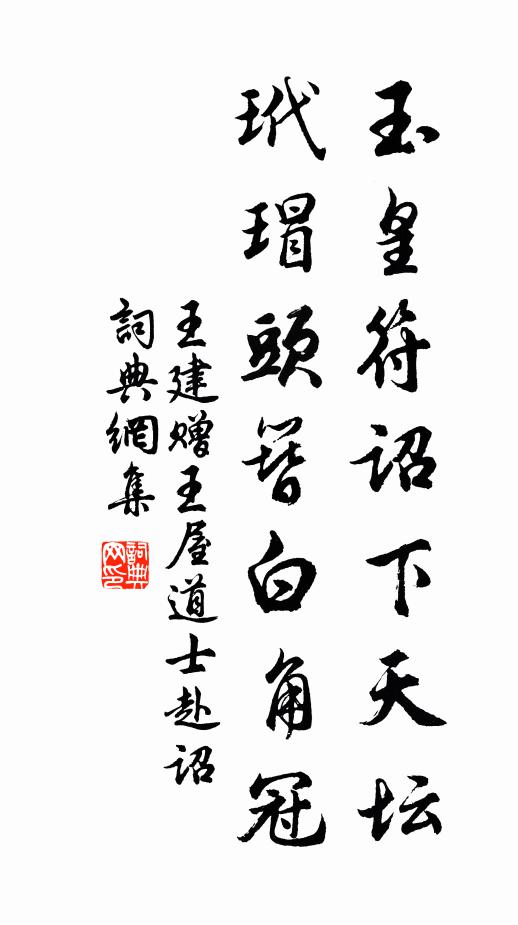 玉皇符诏下天坛
玳瑁頭簪白角冠
王建赠王屋道士赴诏
詞典網集
詞典
网印